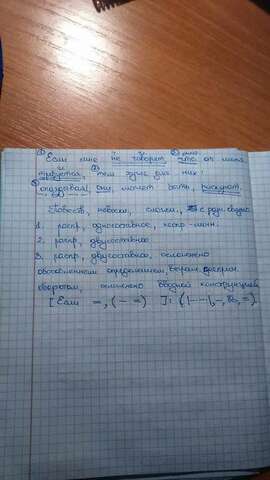 Если мне не говорят, что от меня
требуется, тем хуже для них:
опоздравши, они, может быть, рискуют.
Повеств, невоскл, сложн, с разн. видами
1. распр, односоставное, неопр-личн.
2. распр, двусоставное
3. распр, двусоставное, осложнено
обособленным определением, выраж.
оборотом, осложнено вводной конструкцией
[Если =, (- =) ]: (|---|, -, ВС, =).